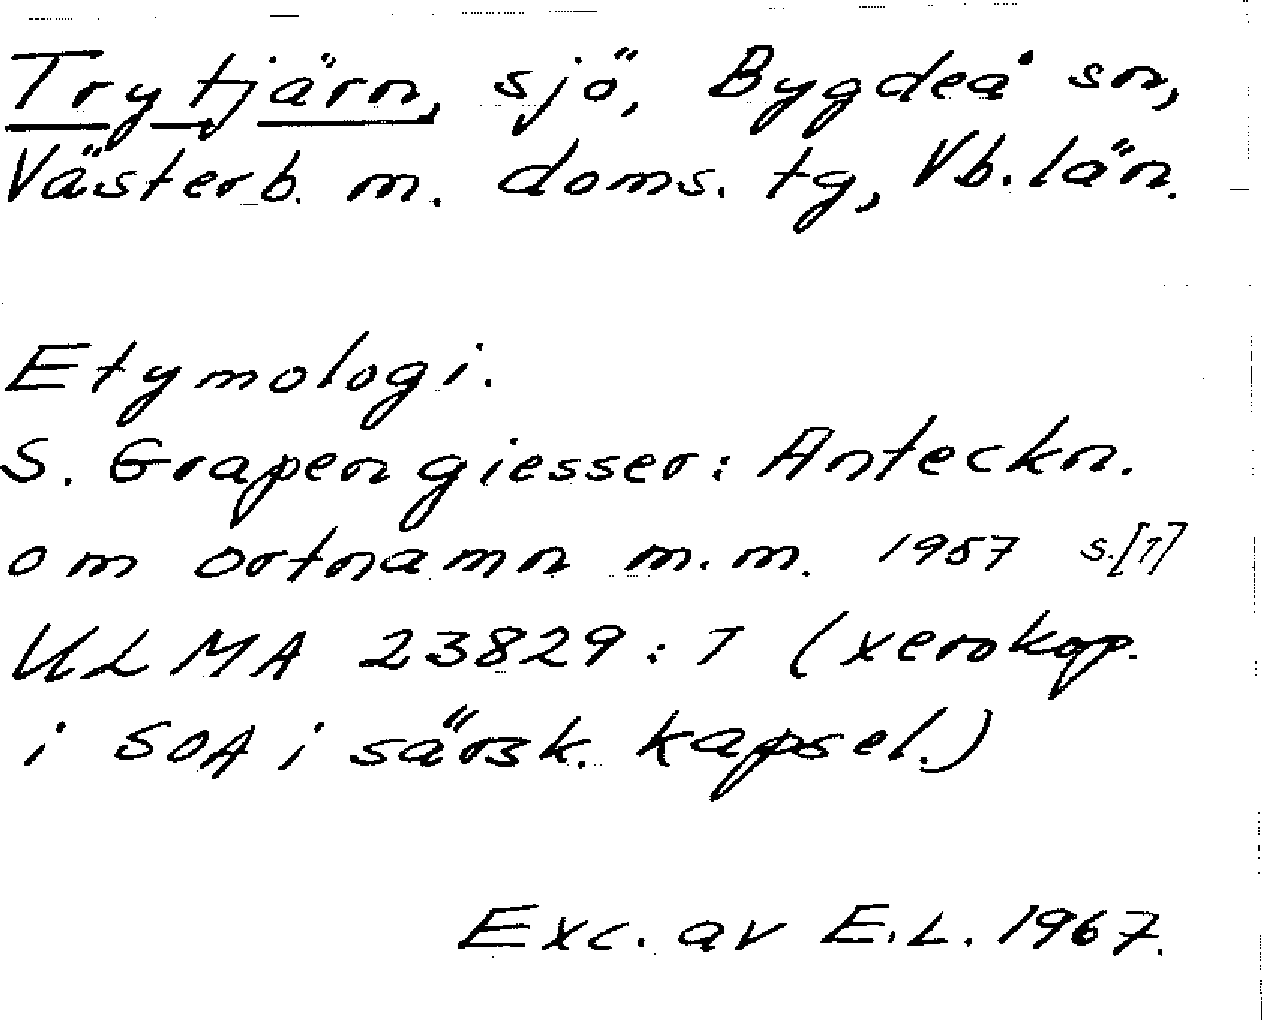 Trytjärn, sjö, Bygdeå sn,
Västerb. m. doms. tg, Vb. län.
Etymologi.
S. Grapengiesser: Anteckn.
om ortnamn m.m. 1957 s.[1]
ULMA 23829:7 (xerokop.
i SOA i särsk. kapsel.)
Exc. av E.L. 1967.